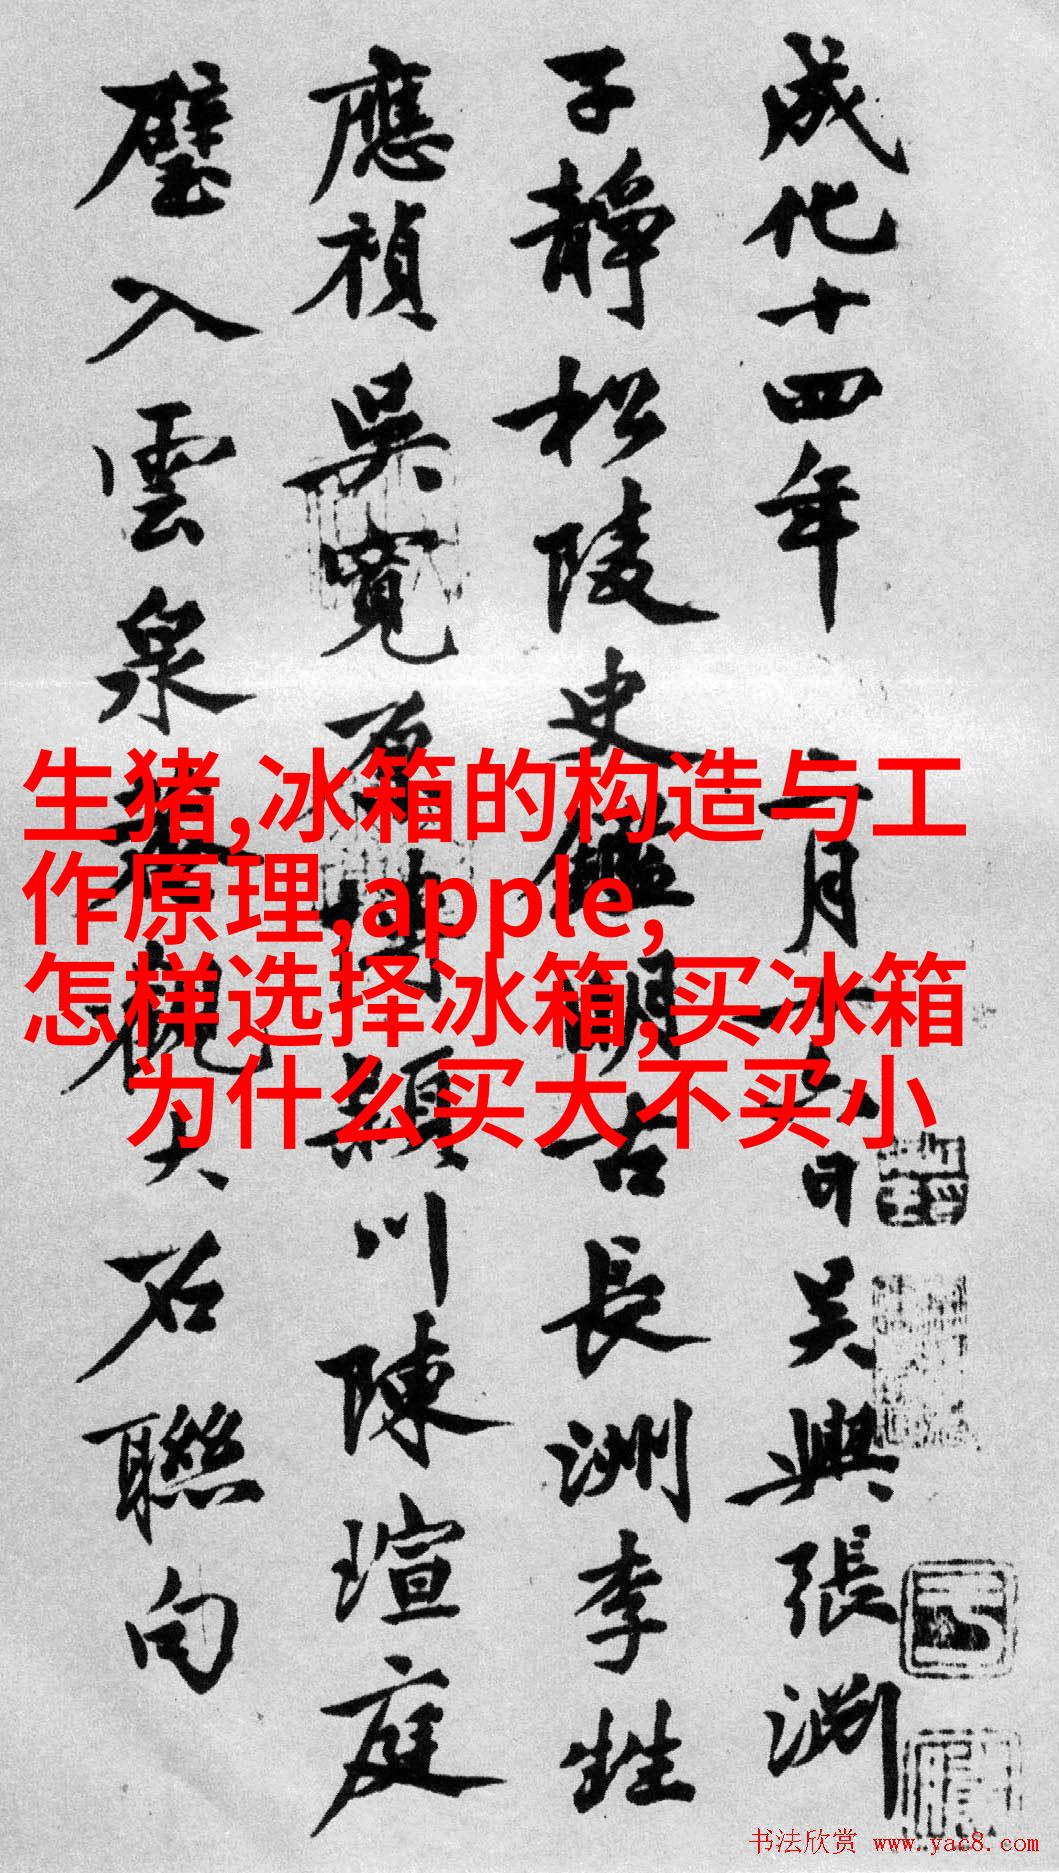 成化十四年二月十六日吳興張淵
子靜松陵史鑑明古長洲李甡
應禎吳寬原博潁川陳瑄庭
璧入雲泉菴觀大石聯句
生猪,冰箱的构造与工
作原理,apple,
怎样选择冰箱,买冰箱
为什么买大不买小
书法欣赏 www.yac8.com